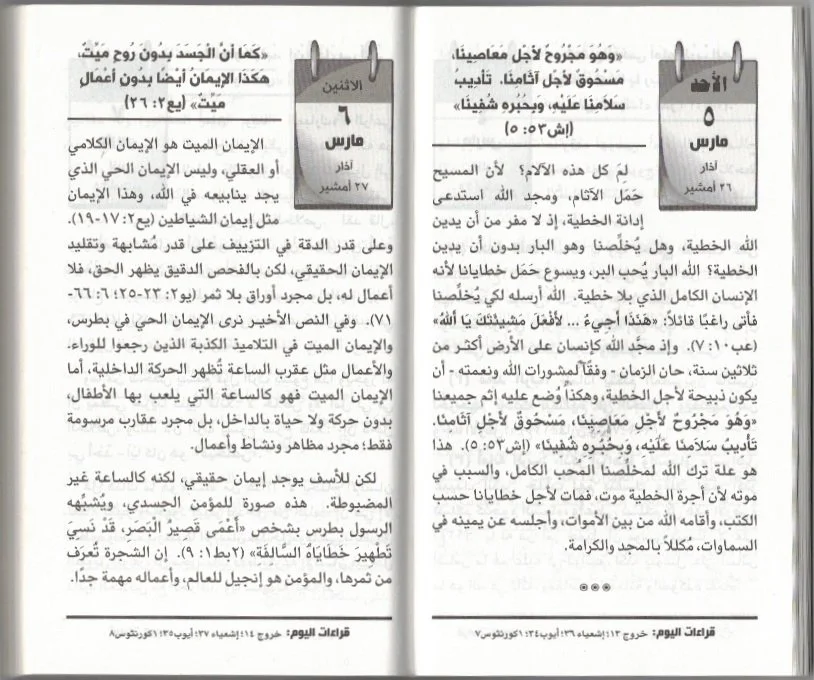 «وَهُوَ مَجْرُوحٌ لأَجْلِ مَعَاصِينَا،
مَسْحُوقٌ لأَجْلِ آثَامِنَا. تَأْدِيبُ
سَلاَمِنَا عَلَيْهِ، وَبِحُبُرِهِ شُفِينَا»
(إش٥٣: ٥)
الأحد
٥
مارس
آذار
٢٦ أمشير
لِمَ كل هذه الآلام؟ لأن المسيح
حَمَل الآثام، ومجد الله استدعى
إدانة الخطية، إذ لا مفر من أن يدين
الله الخطية، وهل يُخلِّصنا وهو البار بدون أن يدين
الخطية؟ الله البار يُحب البر، ويسوع حَمَل خطايانا لأنه
الإنسان الكامل الذي بلا خطية. الله أرسله لكي يُخلِّصنا
فأتى راغبًا قائلاً: «هَنَذَا أَجِيءُ ... لأَفْعَلَ مَشِيئَتَكَ يَا أَللهُ»
(عب١٠: ٧). وإذ مجَّد الله كإنسان على الأرض أكثر من
ثلاثين سنة، حان الزمان - وفقًا لمشورات الله ونعمته - أن
يكون ذبيحة لأجل الخطية، وهكذا وُضع عليه إثم جميعنا
«وَهُوَ مَجْرُوحٌ لأَجْلِ مَعَاصِينَا، مَسْحُوقٌ لأَجْلِ آثَامِنَا.
تَأْدِيبُ سَلاَمِنَا عَلَيْهِ، وَبِحُبُرِهِ شُفِينَا» (إش٥٣: ٥). هذا
هو علة ترك الله لمخلِّصنا المحب الكامل، والسبب في
موته لأن أجرة الخطية موت، فمات لأجل خطايانا حسب
الكتب، وأقامه الله من بين الأموات، وأجلسه عن يمينه في
السماوات، مُكللاً بالمجد والكرامة.
قراءات اليوم: خروج ١٣؛ إشعياء ٣٦؛ أيوب ٣٤؛ ١كورنثوس ٧
«كَمَا أَنَّ الْجَسَدَ بِدُونِ رُوحٍ مَيِّتٌ،
هَكَذَا الإِيمَانُ أَيْضًا بِدُونِ أَعْمَالٍ
مَيِّتٌ» (يع٢: ٢٦)
الاثنين
٦
مارس
آذار
٢٧ أمشير
الإيمان الميت هو الإيمان الكلامي
أو العقلي، وليس الإيمان الحي الذي
يجد ينابيعه في الله، وهذا الإيمان
مثل إيمان الشياطين (يع٢: ١٧-١٩).
وعلى قدر الدقة في التزييف على قدر مُشابهة وتقليد
الإيمان الحقيقي، لكن بالفحص الدقيق يظهر الحق، فلا
أعمال له، بل مجرد أوراق بلا ثمر (يو٢: ٢٣-٢٥؛ ٦: ٦٦-
٧١). وفي النص الأخير نرى الإيمان الحي في بطرس،
والإيمان الميت في التلاميذ الكذبة الذين رجعوا للوراء.
والأعمال مثل عقرب الساعة تُظهر الحركة الداخلية، أما
الإيمان الميت فهو كالساعة التي يلعب بها الأطفال،
بدون حركة ولا حياة بالداخل، بل مجرد عقارب مرسومة
فقط؛ مجرد مظاهر ونشاط وأعمال.
لكن للأسف يوجد إيمان حقيقي، لكنه كالساعة غير
المضبوطة. هذه صورة للمؤمن الجسدي، ويُشبِّهه
الرسول بطرس بشخص «أَعْمَى قَصِيرُ الْبَصَرِ، قَدْ نَسِيَ
تَطْهِيرَ خَطَايَاهُ السَّالِفَةِ» (٢بط١: ٩). إن الشجرة تُعرَف
من ثمرها، والمؤمن هو إنجيل للعالم، وأعماله مهمة جدًا.
قراءات اليوم: خروج ١٤؛ إشعياء ٣٧؛ أيوب ٣٥؛ ١كورنثوس ٨